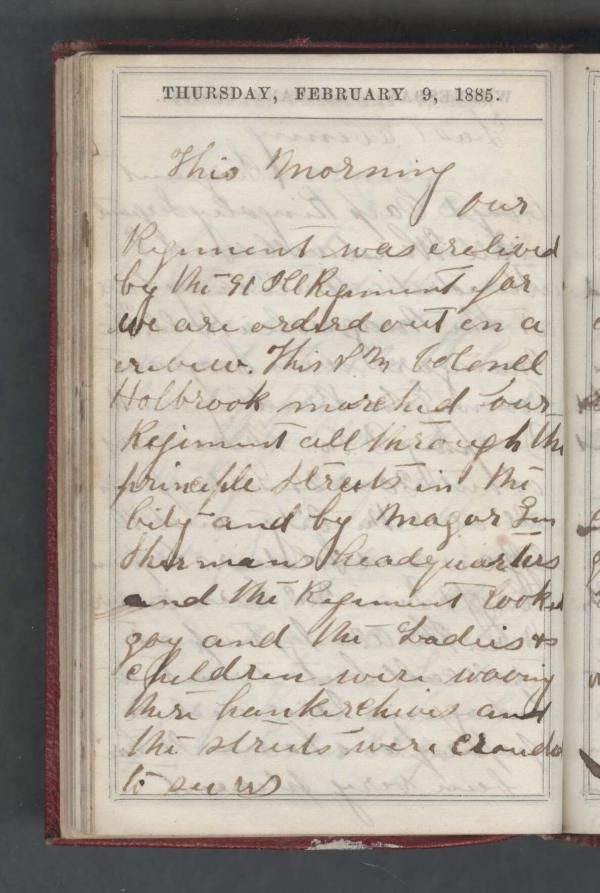 THURSDAY, FEBRUARY 9, 1885.
This Morning
our
Regiment was erelived
by the 91 Ill Regiment for
we are orderd out on a
ereview. This P M Colonell
Holbrook marched our
Regiment all through the
principle streets in the
City and by Magor Gen
Shermans headquarters
and the Regiment looked
gay and the Ladies &
Children were waving
there hankerchives and
the streets were crouded
to see us